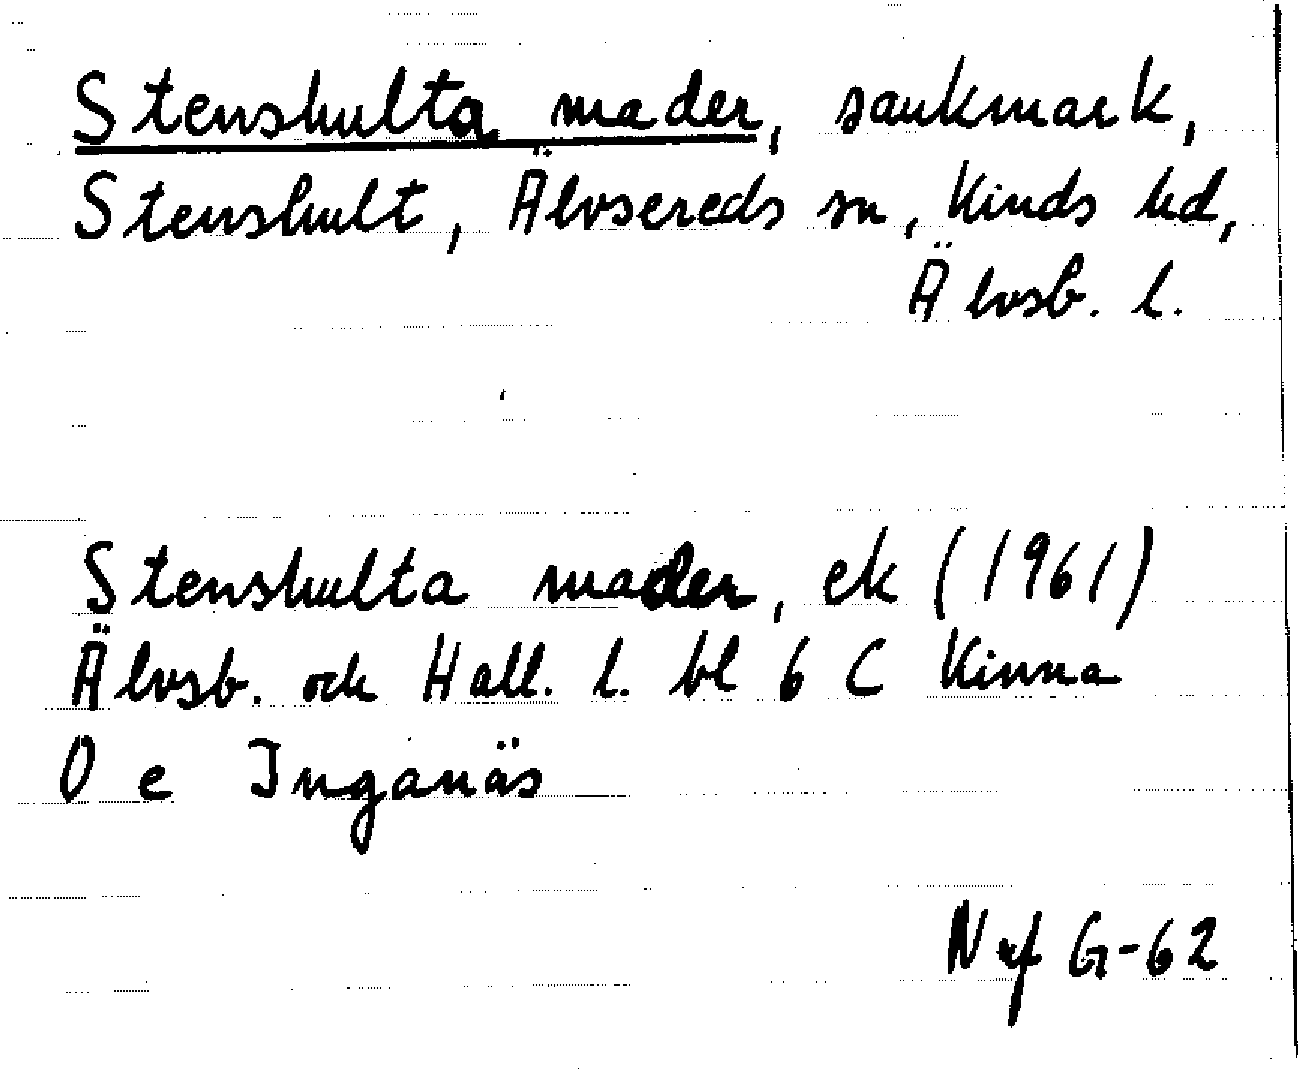 Stenshulta mader, sankmark,
Stenshult, Älvsereds sn, Kinds hd,
Älvsb. l.
Stenshulta mader, ek (1961)
Älvsb. och Hall. l. bl 6 C Kinna
O e Inganäs
G-62